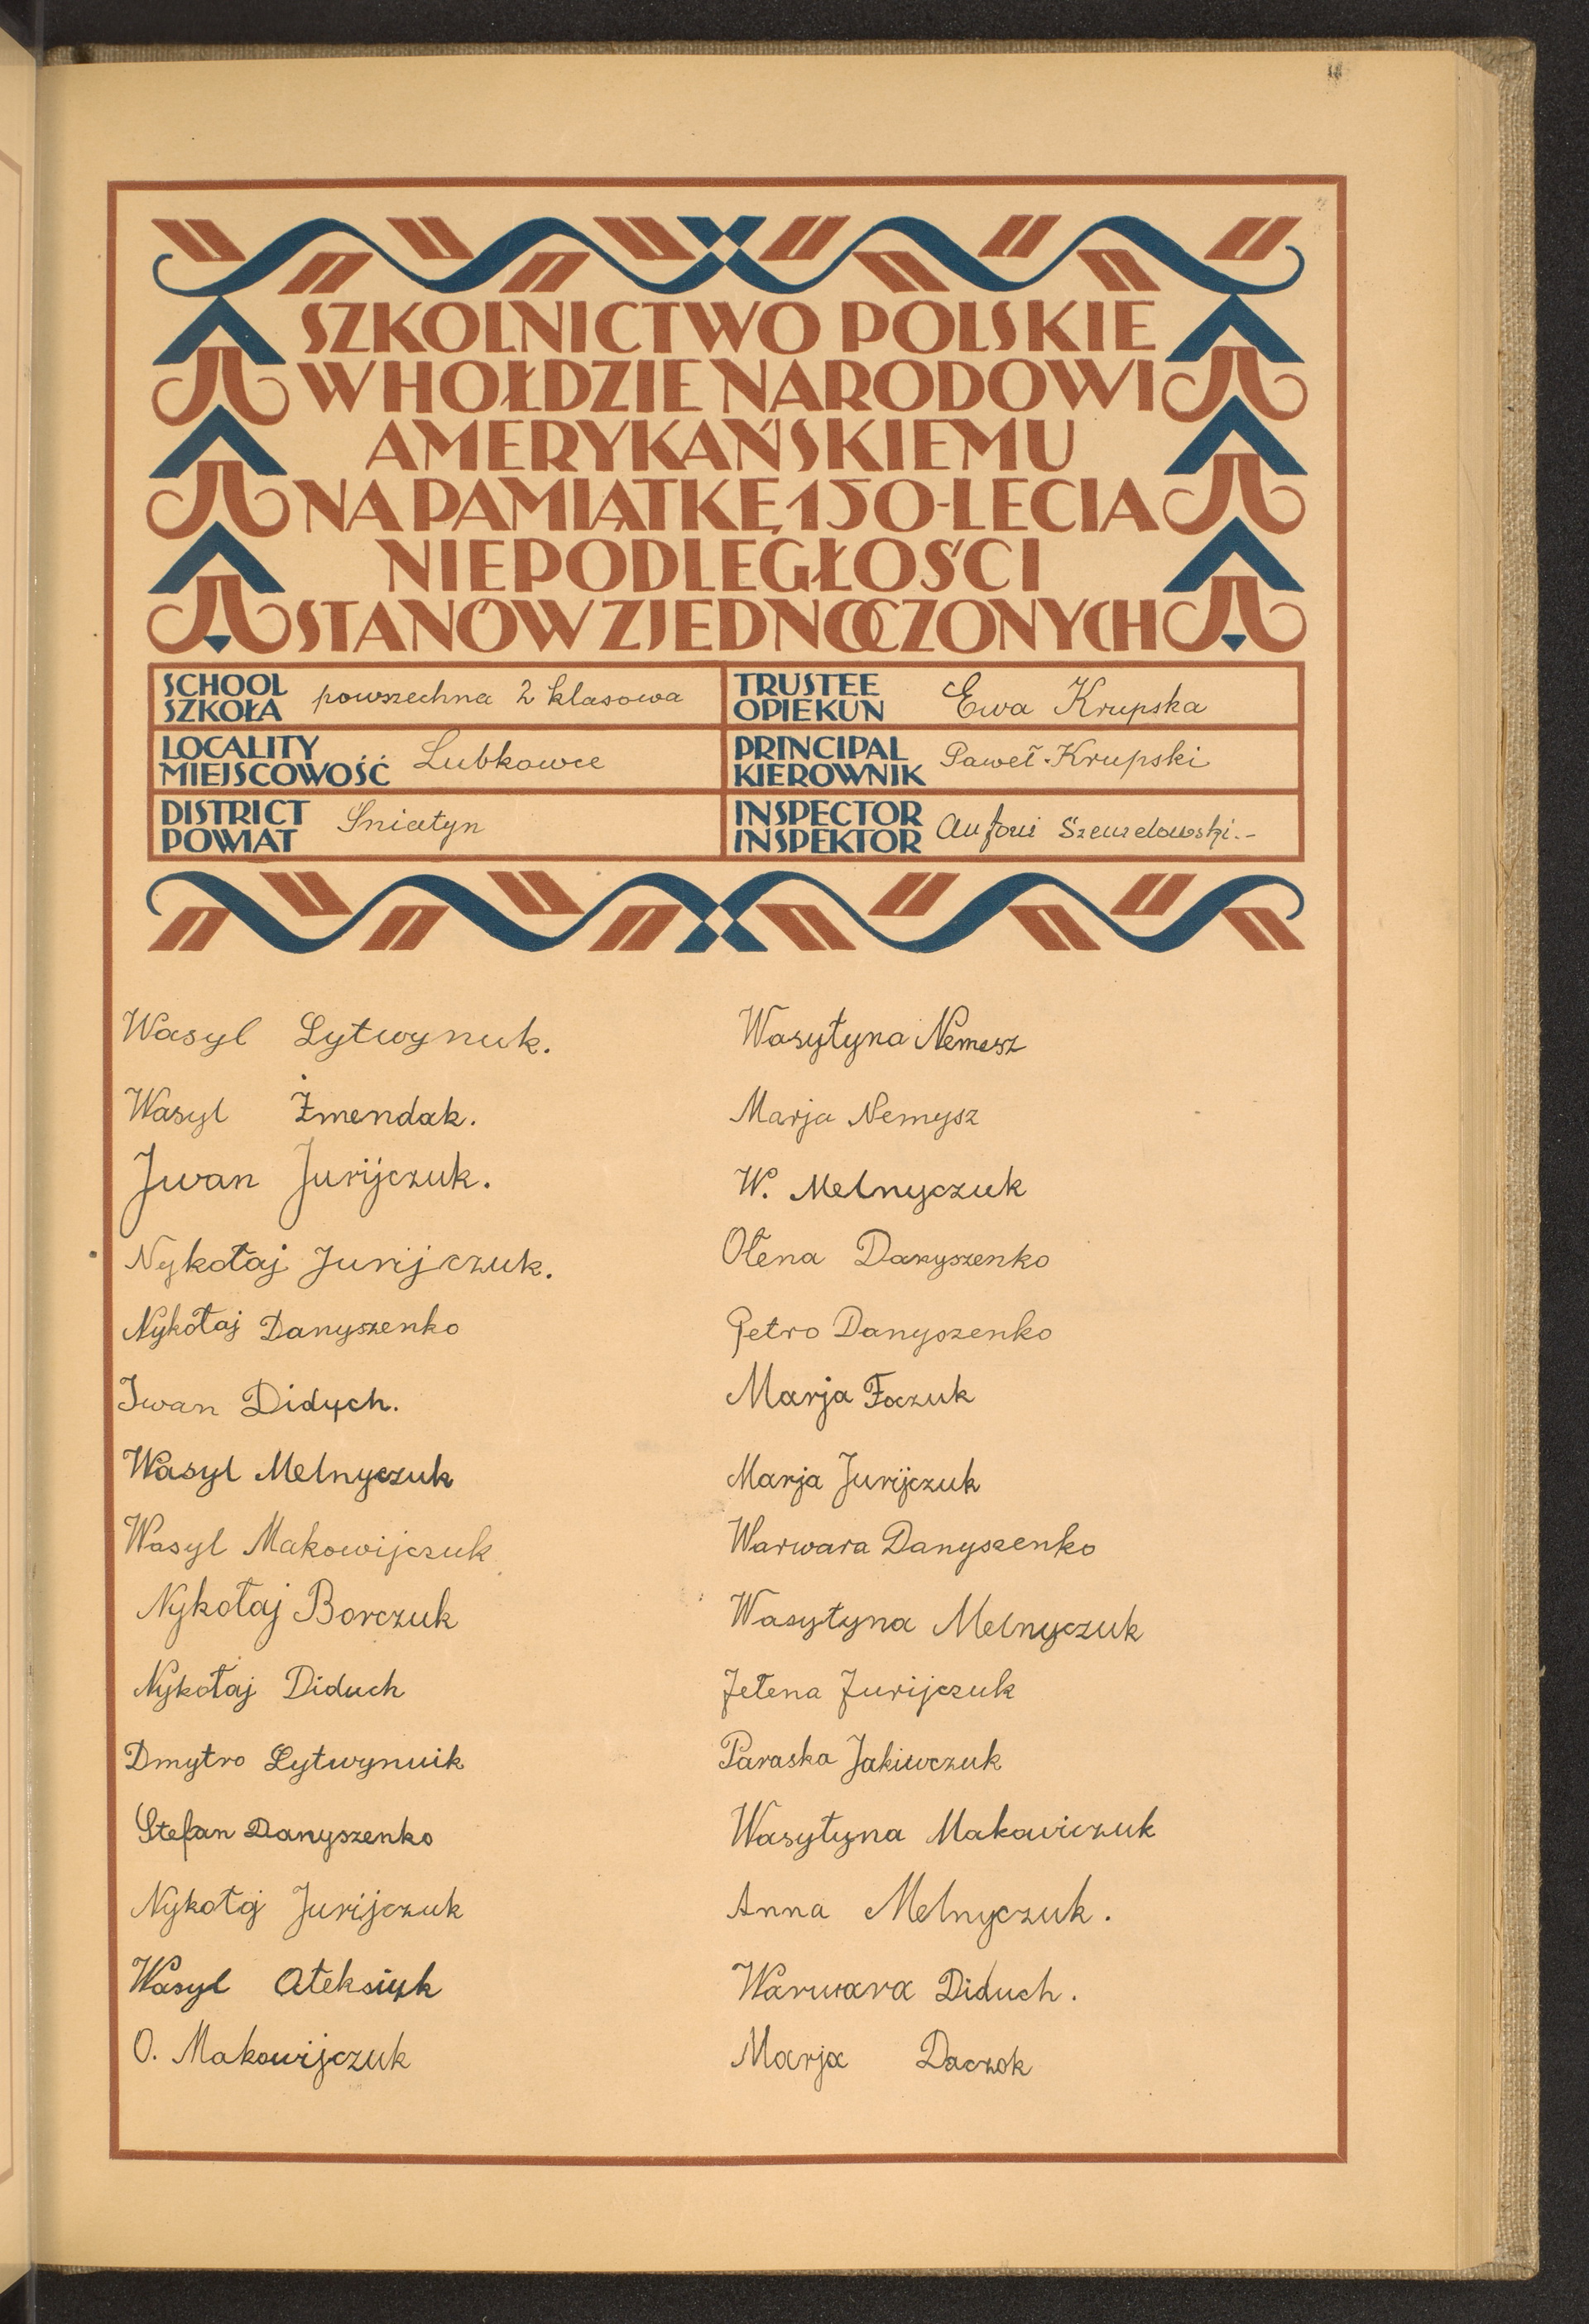 SZKOLNICTWO POLSKIE
W HOŁDZIE NARODOWI
AMERYKAŃSKIEMU
NA PAMIĄTKĘ 150-LECIA
NIEPODLEGŁOŚCI
STANÓW ZJEDNOCZONYCH
SCHOOL
SZKOŁA powszechna 2 klasowa
TRUSTEE
OPIEKUN Ewa Krupska
LOCALITY
MIEJSCOWOŚĆ Lubkowce
PRINCIPAL
KIEROWNIK Paweł Krupski
DISTRICT
POWIAT Śniatyn
INSPECTOR
INSPEKTOR Antoni
Wasyl Lytwynuk.
Wasyl Żmendak.
Jwan Jurijczuk.
Nykołaj Jurijczuk.
Nykołaj Danyszenko
Iwan Didych.
Wasyl Melnyczuk
Wasyl Makowijczuk
Nykołaj Borczuk
Nykołaj Diduch
Dmytro Lytwynuik
Stefan Danyszenko
Nykołaj Jurijczuk
Wasyl Ołeksiuk
O. Makowijczuk
Wasyłyna Nemesz
Marja Nemysz
W. Melnyczuk
Ołena Danyszenko
Petro Danyszenko
Marja Foczuk
Marja Jurijczuk
Warwara Danyszenko
Wasyłyna Melnyczuk
Jełena Jurijczuk
Paraska Jakiwczuk
Wasyłyna Makowiczuk
Anna Melnyczuk.
Warwara Diduch.
Marja Daczok